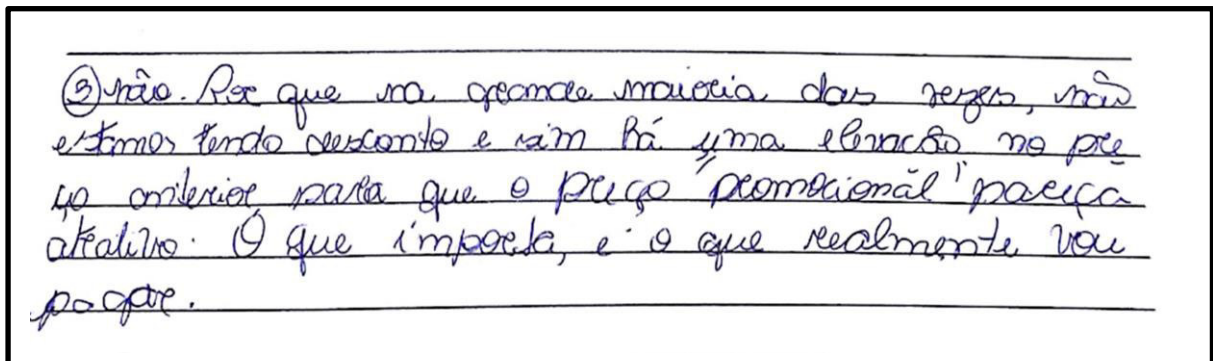 ③ não. Por que na grande maioria das vezes, não
estamos tendo desconto e sim há uma elevação no pre
ço anterior para que o preço "promocional" pareça
atrativo. O que importa, é o que realmente vou
pagar.